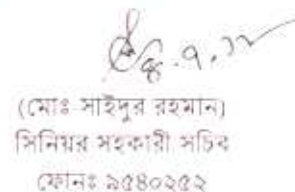 (মোঃ সাইদুর রহমান)
সিনিয়র সহকারী সচিব
ফোনঃ ৯৫৪০২৫২